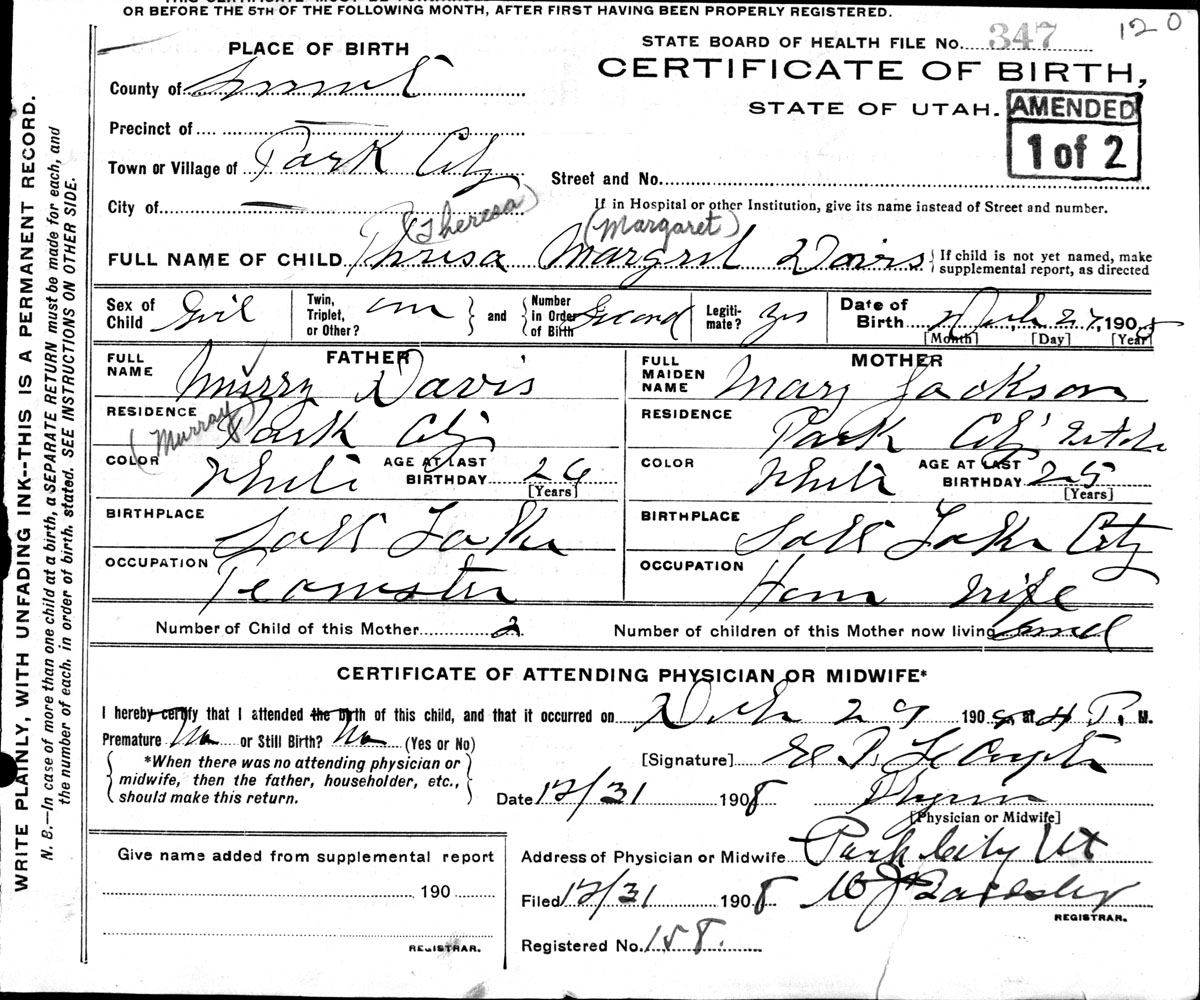 OR BEFORE THE 5TH OF THE FOLLOWING MONTH, AFTER FIRST HAVING BEEN PROPERLY REGISTERED.
120
PLACE OF BIRTH
STATE BOARD OF HEALTH FILE No. 347
CERTIFICATE OF BIRTH,
STATE OF UTAH.
AMENDED
1 of 2
County of Summit
Precinct of
Town or Village of Park City
Street and No.
City of
If in Hospital or other Institution, give its name instead of Street and number.
(Theresa) (Margaret)
FULL NAME OF CHILD Thresa Margret Davis { If child is not yet named, make supplemental report, as directed
Sex of Child Girl Twin, Triplet, or Other? } and { Number in Order of Birth Second Legitimate? Yes Date of Birth 190
[Month] [Day] [Year]
FATHER
FULL NAME Murry Davis
RESIDENCE Park City
(Murray)
COLOR White AGE AT LAST BIRTHDAY 26
[Years]
BIRTHPLACE Salt Lake
OCCUPATION Teamster
MOTHER
FULL MAIDEN NAME Mary Jackson
RESIDENCE Park City Utah
COLOR White AGE AT LAST BIRTHDAY 25
[Years]
BIRTHPLACE Salt Lake City
OCCUPATION House Wife
Number of Child of this Mother 2
Number of children of this Mother now living
CERTIFICATE OF ATTENDING PHYSICIAN OR MIDWIFE*
I hereby certify that I attended the birth of this child, and that it occurred on 190 , at 4 P. M.
Premature No or Still Birth? No (Yes or No)
{ *When there was no attending physician or midwife, then the father, householder, etc., should make this return. }
[Signature]
Date 12/31 1908
[Physician or Midwife]
Give name added from supplemental report
190
REGISTRAR.
Address of Physician or Midwife Park City Ut
Filed 12/31 1908
REGISTRAR.
Registered No. 158.
WRITE PLAINLY, WITH UNFADING INK--THIS IS A PERMANENT RECORD.
N. B.—In case of more than one child at a birth, a SEPARATE RETURN must be made for each, and
the number of each, in order of birth, stated. SEE INSTRUCTIONS ON OTHER SIDE.